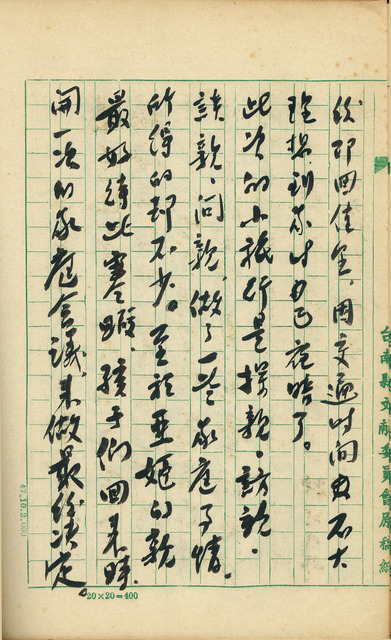 後即回佳里，因交通時間也不大
理想，到家時也已夜暗了。
此次的小旅行是探親、訪親、
談親、問親，做了一些家庭事情。
所得的却不少。至於亞姬的親
最好待此寒假，孩子們回来時，
開一次的家庭会議，来做最後決定。
台南縣文献委員會原稿紙
47.10.2.000
20×20=400